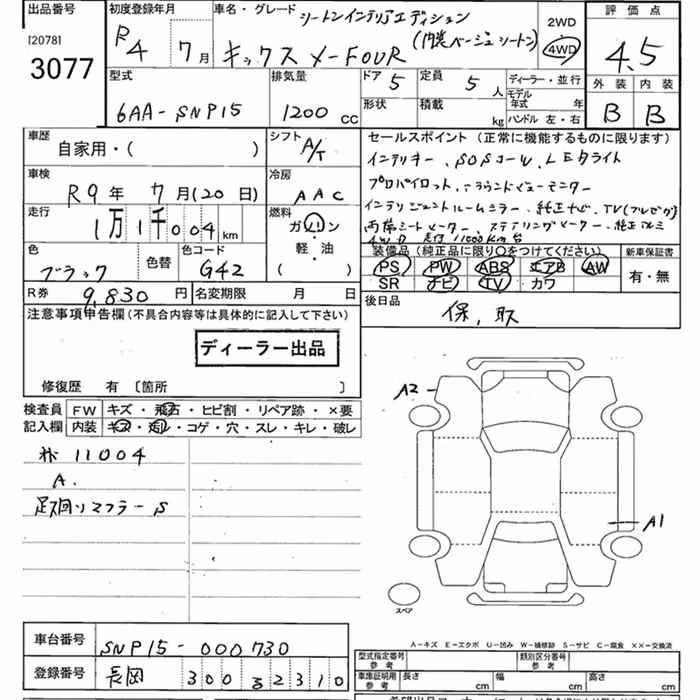 出品番号 初度登録年月 車名・グレード シートンインテリアエディション 2WD 評価点
120781 R4 7月 キックス X-FOUR (内装ベージュシートン) 4WD 4.5
3077
型式 排気量 ドア 5 定員 5人 ディーラー・並行 外装 内装
モデル年式 年
6AA-SNP15 1200cc 形状 積載 kg ハンドル 左・右 B B
車歴 シフト A/T セールスポイント (正常に機能するものに限ります)
自家用・( )
インテリキー、SOSコール、LEDライト
車検 冷房 プロパイロット、アラウンドビューモニター
R9年 7月(20日) AAC インテリジェントルームミラー、純正ナビ、TV(フルセグ)
走行 燃料 両席シートヒーター、ステアリングヒーター、純正アルミ
1万1千004km ガソリン 4WD 走行11000km台
軽・油
( )
装備品 (純正品に限り○をつけてください) 新車保証書
色 ブラック 色替 色コード G42 PS PW ABS エアB AW 有・無
SR ナビ TV カワ
R券 9,830円 名変期限 月 日 後日品
保、取
注意事項申告欄(不具合内容等は具体的に記入して下さい)
ディーラー出品
修復歴 有 〔箇所 〕
検査員 FW キズ・飛石・ヒビ割・リペア跡・×要
記入欄 内装 キズ・ヨゴレ・コゲ・穴・スレ・キレ・破レ
A2
11004
A.
足廻りマフラーS
A1
スペア
A-キズ E-エクボ U-凹み W-補修跡 S-サビ C-腐食 XX-交換済
車台番号 SNP15-000730
型式指定番号 参考 類別区分番号 参考
登録番号 長岡 300 す 2310
車庫証明用 参考 長さ cm 幅 cm 高さ cm